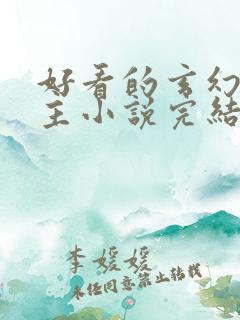 好看的玄幻
主小说完结
李媛媛
未经同意禁止转载